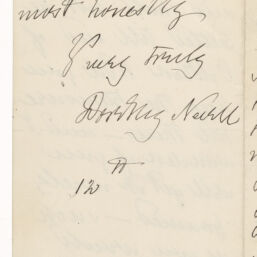 most honestly
Yours truly
Dorothy Nevill
120